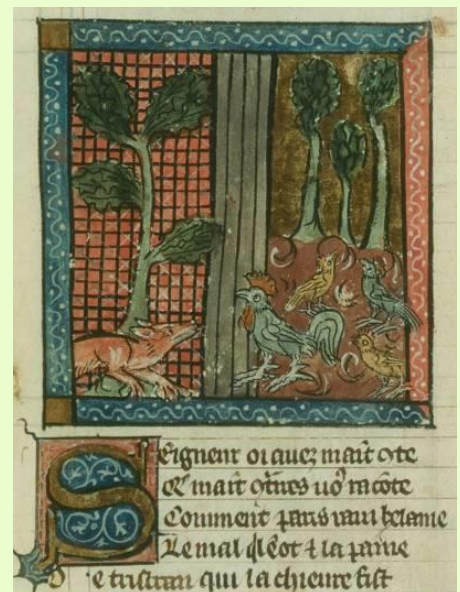 Seigneur oi avez mait ɔte
Et mait ɔtres uoꝰ racōte
Conment paris raui helaine
Le mal qͥl ē ot ⁊ la paine
De tristran qui la chieure fist